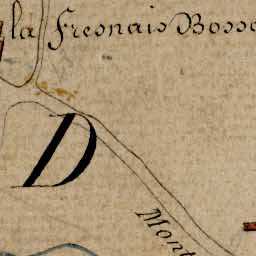 la Fresnais Bosse
D
Mont